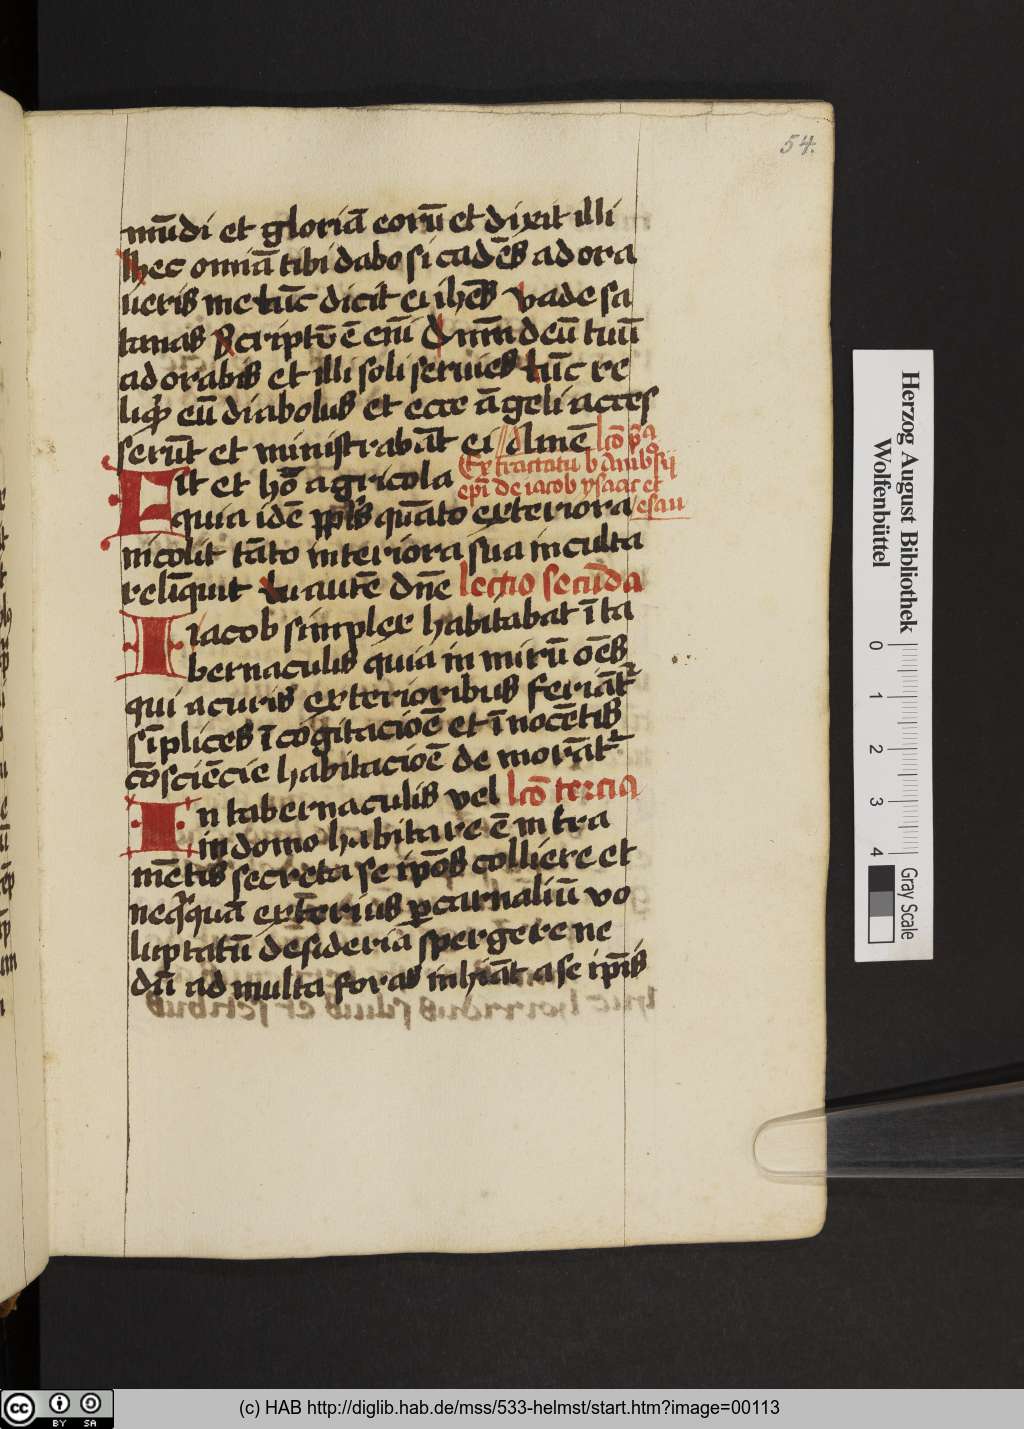 54.
mūdi et gloriā eorū et dixit illi
hec omnia tibi dabo si cadēs adora
ueris me tūc dicit ei ihēs vade sa
tanas scriptū ē eni dnm deū tuū
adorabis et illi soli seruies tūc re
liq̄t eū diabolus et ecce āgeli acces
serūt et ministrabāt ei dlmē lco pa
Ex tractatu b ambrosij
epi de iacob ysaac et
esau
Fit et hō agricola
quia idē quāto exteriora
incolit tāto interiora sua inculta
relīquit tu autē dne lectio secūda
Iacob simplex habitabat ī ta
bernaculis quia in mirū oēs
qui a curis exterioribus feriāt
sīplices ī cogitacioē et īnocētis
cōsciēcie habitacioē de morāt
In tabernaculis vel lco tercia
in domo habitare ē intra
mētis secreta se ipos colliere et
neq̄quā exterius carnaliū vo
luptatū desideria spergere ne
dū ad multa foras inhiāt a se ipis
Herzog August Bibliothek
Wolfenbüttel
0 1 2 3 4
Gray Scale
(c) HAB http://diglib.hab.de/mss/533-helmst/start.htm?image=00113
cc BY SA